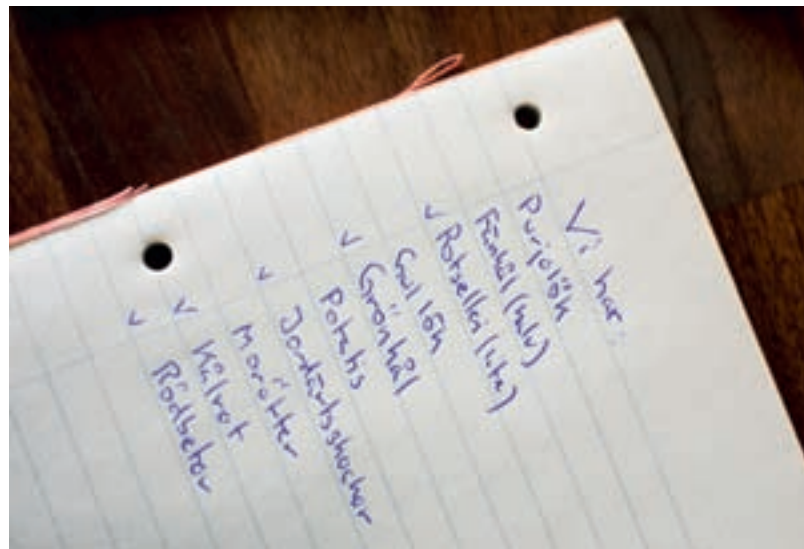 Vi har:
Purjolök
Fänkål (halv)
✓ Rotselleri (lite)
Gul lök
✓ Grönkål
Potatis
✓ Jordärtsskockor
Morötter
✓ Kålrot
✓ Rödbetor